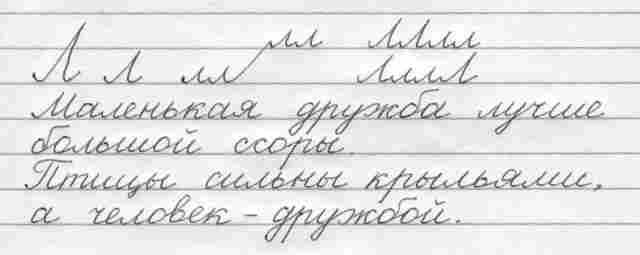 лл ЛЛлл
Л Л лл ЛллЛ
Маленькая дружба лучше
большой ссоры.
Птицы сильны крыльями,
а человек - дружбой.